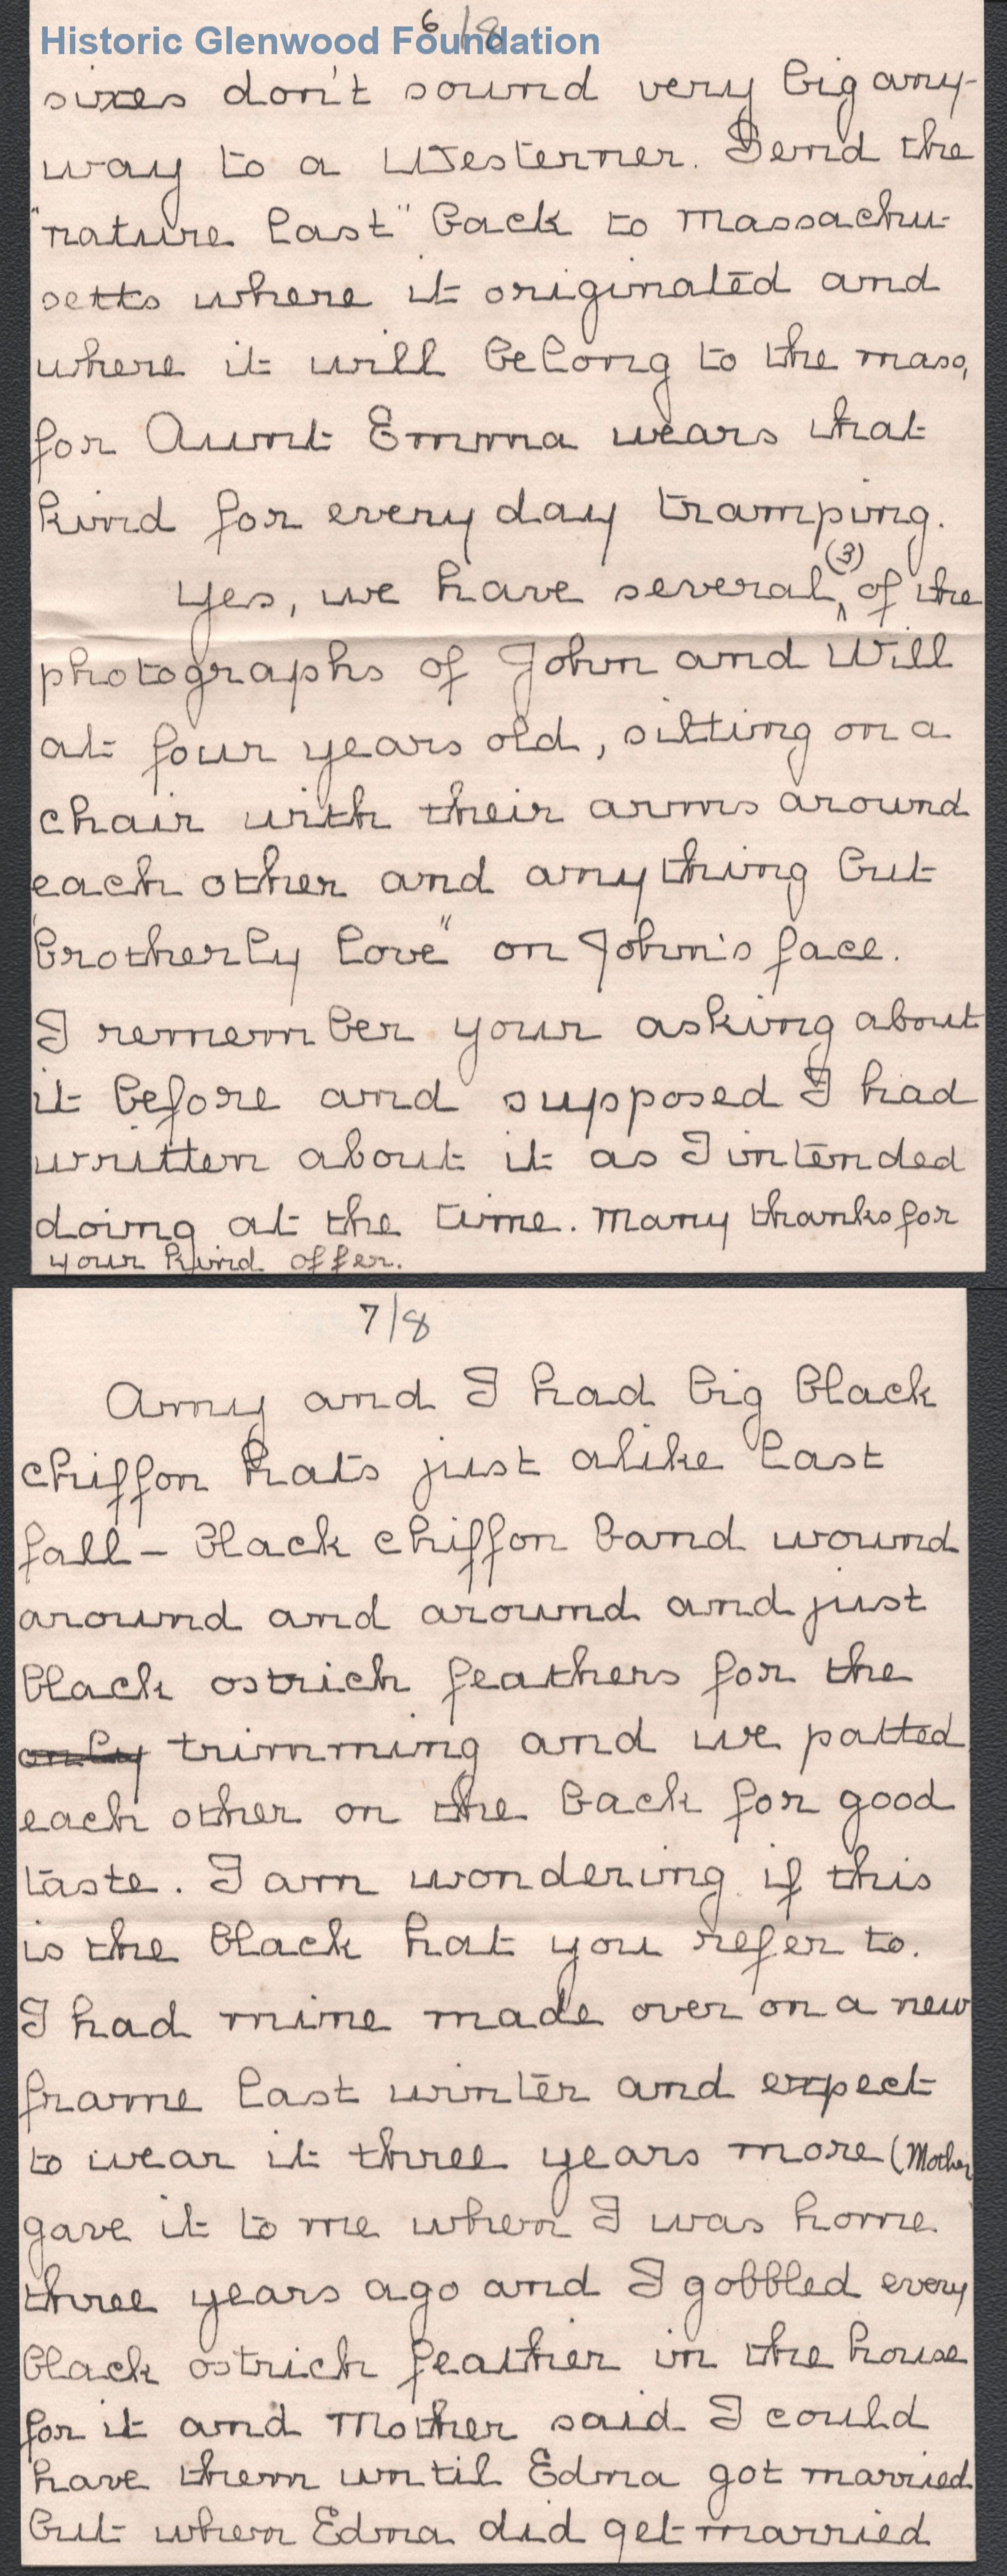 Historic Glenwood Foundation
6/8
sixes don't sound very big any-
way to a Westerner. Send the
"nature last" back to Massachu-
setts where it originated and
where it will belong to the mass,
for Aunt Emma wears that
kind for every day tramping.
Yes, we have several (3) of the
photographs of John and Will
at four years old, sitting on a
chair with their arms around
each other and anything but
"brotherly love" on John's face.
I remember your asking about
it before and supposed I had
written about it as I intended
doing at the time. Many thanks for
your kind offer.
7/8
Amy and I had big black
chiffon hats just alike last
fall – black chiffon band wound
around and around and just
black ostrich feathers for the
only trimming and we patted
each other on the back for good
taste. I am wondering if this
is the black hat you refer to.
I had mine made over on a new
frame last winter and expect
to wear it three years more (Mother
gave it to me when I was home
three years ago and I gobbled every
black ostrich feather in the house
for it and Mother said I could
have them until Edna got married
but when Edna did get married